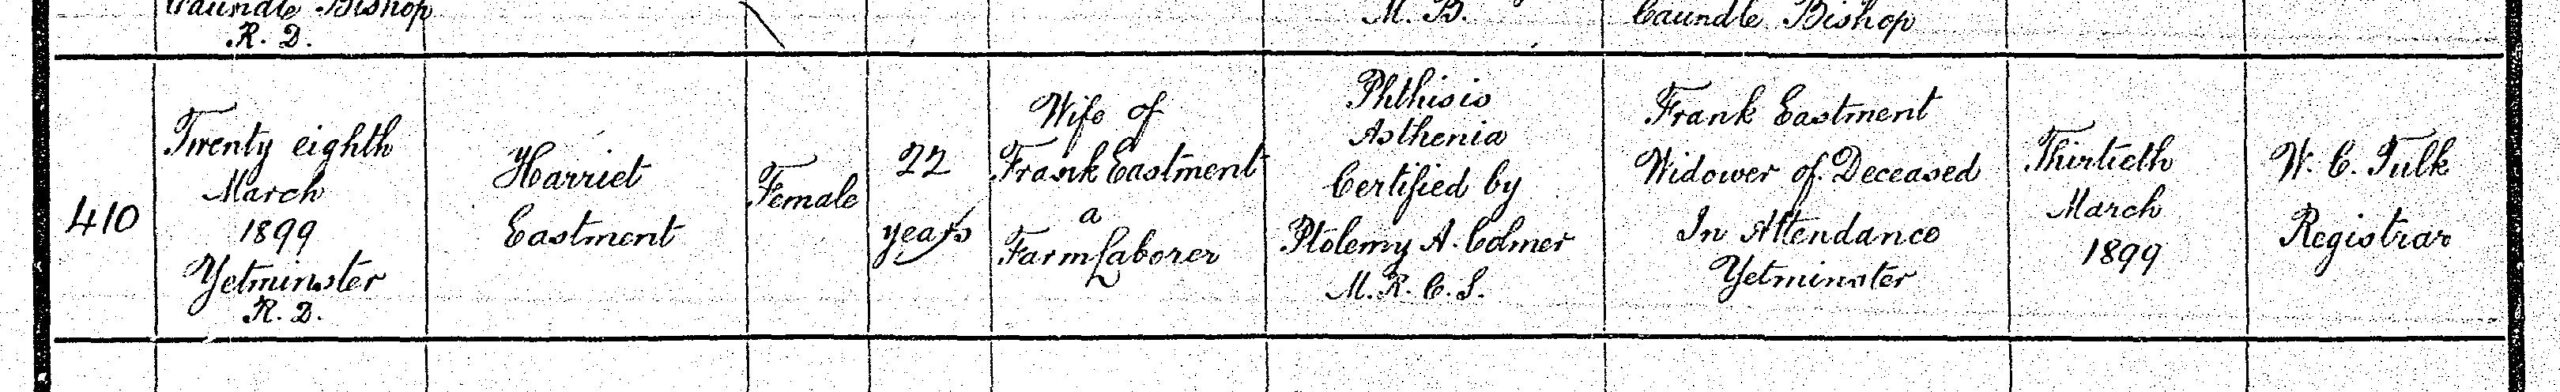 Caundle Bishop
R. D.
M. B.
Caundle Bishop
410
Twenty eighth
March
1899
Yetminster
R. D.
Harriet
Eastment
Female
22
years
Wife of
Frank Eastment
a
Farm Laborer
Phthisis
Asthenia
Certified by
Ptolemy A. Colmer
M. R. C. S.
Frank Eastment
Widower of Deceased
In Attendance
Yetminster
Thirtieth
March
1899
W. C. Tulk
Registrar